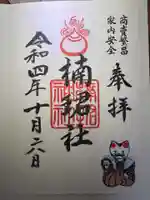 商売繁昌
家内安全
奉拝
楠珺社
令和四年十月六日